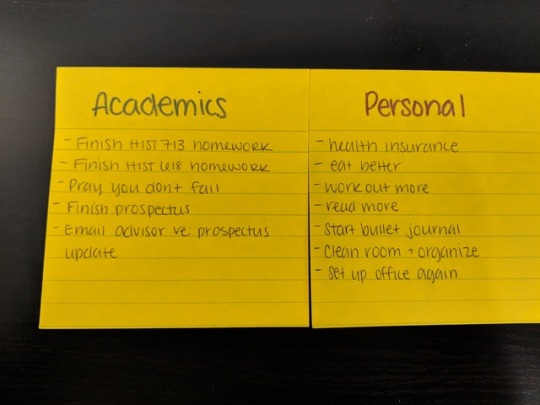 Academics
- Finish HIST 713 homework
- Finish HIST 618 homework
- Pray you don't fail
- Finish prospectus
- Email advisor re: prospectus
update
Personal
- health insurance
- eat better
- work out more
- read more
- Start bullet journal
- Clean room + organize
- Set up office again